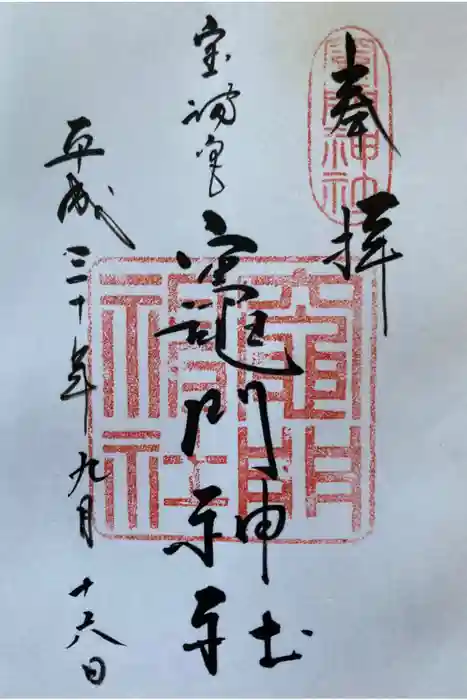 奉拝
宝満宮
竈門神社
平成三十年九月十六日
竈門神社
竈門神社